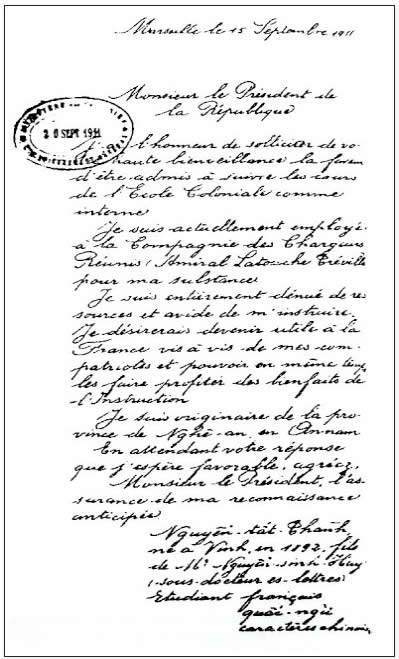 Marseille le 15 Septembre 1911
Monsieur le Président de
la République
20 SEPT 1911
J'ai l'honneur de solliciter de vo
haute bienveillance la faveu
d'être admis à suivre les cours
de l'Ecole Coloniale comme
interne
Je suis actuellement employé
à la Compagnie des Chargeurs
Réunis (Amiral Latouche Tréville
pour ma subsistance
Je suis entièrement dénué de res
sources et avide de m'instruire.
Je désirerais devenir utile à la
France vis à vis de mes com-
patriotes et pouvoir en même temps
les faire profiter des bienfaits de
l'Instruction
Je suis originaire de la pro
vince de Nghê-an, en Annam
En attendant votre réponse
que j'espère favorable, agréez,
Monsieur le Président, l'as
surance de ma reconnaissance
anticipée
Nguyên-tât-Thanh
né à Vinh, en 1892, fils
de Mr Nguyên-sinh-Huy
(sous-docteur es-lettres)
Etudiant français
quôc-ngu
caractères chinois